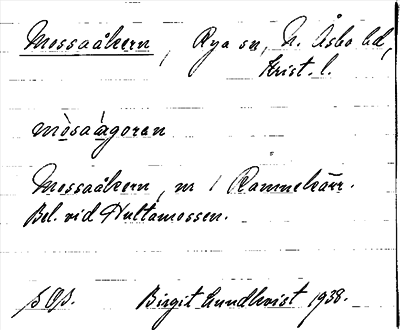 Mossaåkern, Rya sn, N. Åsbo hd,
Krist. l.
mòsaágoran
Mossaåkern, nr 1 Rammekärr.
Bel. vid Hultamossen.
Birgit Lundkvist 1938.